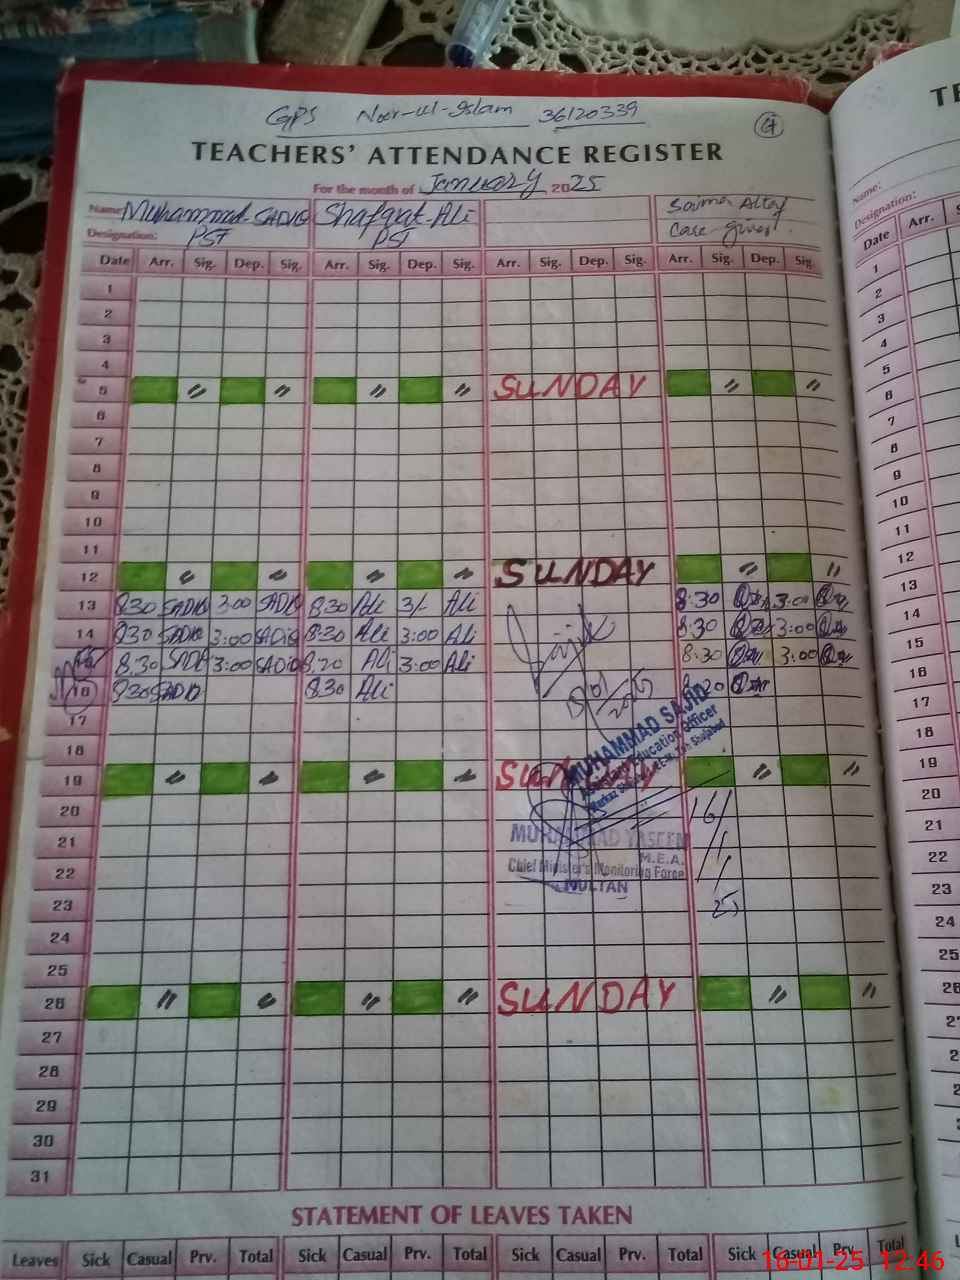 GPS Noor-ul-Islam 36120339
4
TEACHERS' ATTENDANCE REGISTER
For the month of January 2025
Name: Muhammad SADIQ Shafqat Ali Saima Altaf
Designation: PST PST Care giver
Date Arr. Sig. Dep. Sig. Arr. Sig. Dep. Sig. Arr. Sig. Dep. Sig. Arr. Sig. Dep. Sig.
1
2
3
4
5 SUNDAY
6
7
8
9
10
11
12 SUNDAY
13 8:30 SADIQ 3:00 SADIQ 8:30 Ali 3/- Ali 8:30 3:00
14 8:30 SADIQ 3:00 SADIQ 8:30 Ali 3:00 Ali 8:30 3:00
8:30 SADIQ 3:00 SADIQ 8:30 Ali 3:00 Ali 8:30 3:00
16 8:30 SADIQ 8:30 Ali 8:30
17
18
19 SUNDAY
20
21
22
23
24
25
26 SUNDAY
27
28
29
30
31
MUHAMMAD SAJID
Assistant Education Officer
16/1/25
MUHAMMAD YASEEN
M.E.A.
Chief Minister's Monitoring Force
MULTAN
STATEMENT OF LEAVES TAKEN
Leaves Sick Casual Prv. Total Sick Casual Prv. Total Sick Casual Prv. Total Sick Casual Prv. Total
TE
Name:
Designation:
Date Arr. S
1
2
3
4
5
6
7
8
9
10
11
12
13
14
15
16
17
18
19
20
21
22
23
24
25
26
16-01-25 12:46